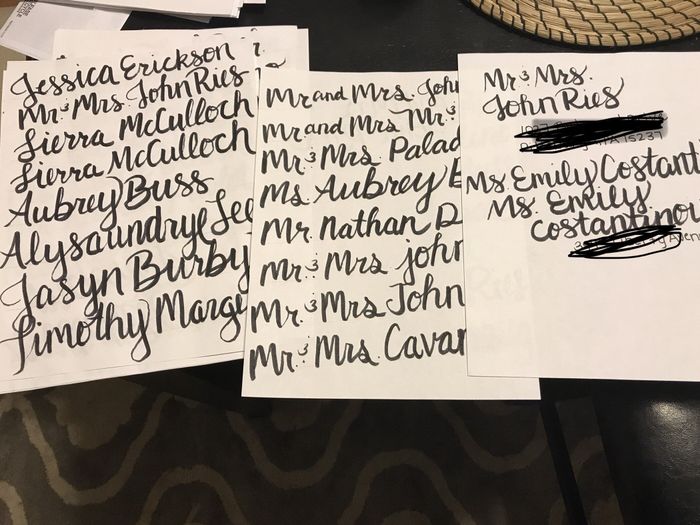 Jessica Erickson
Mr. & Mrs. John Ries
Sierra McCulloch
Sierra McCulloch
Aubrey Buss
Alysaundrye Lee
Jasyn Burby
Timothy Marge
Mr and Mrs John
Mr and Mrs Mr &
Mr & Mrs Palad
Ms. Aubrey B
Mr. Nathan D
Mr. & Mrs John
Mr. & Mrs John
Mr. & Mrs. Cavan
Mr. & Mrs.
John Ries
15237
Ms Emily Costanti
Ms. Emily
Costantino